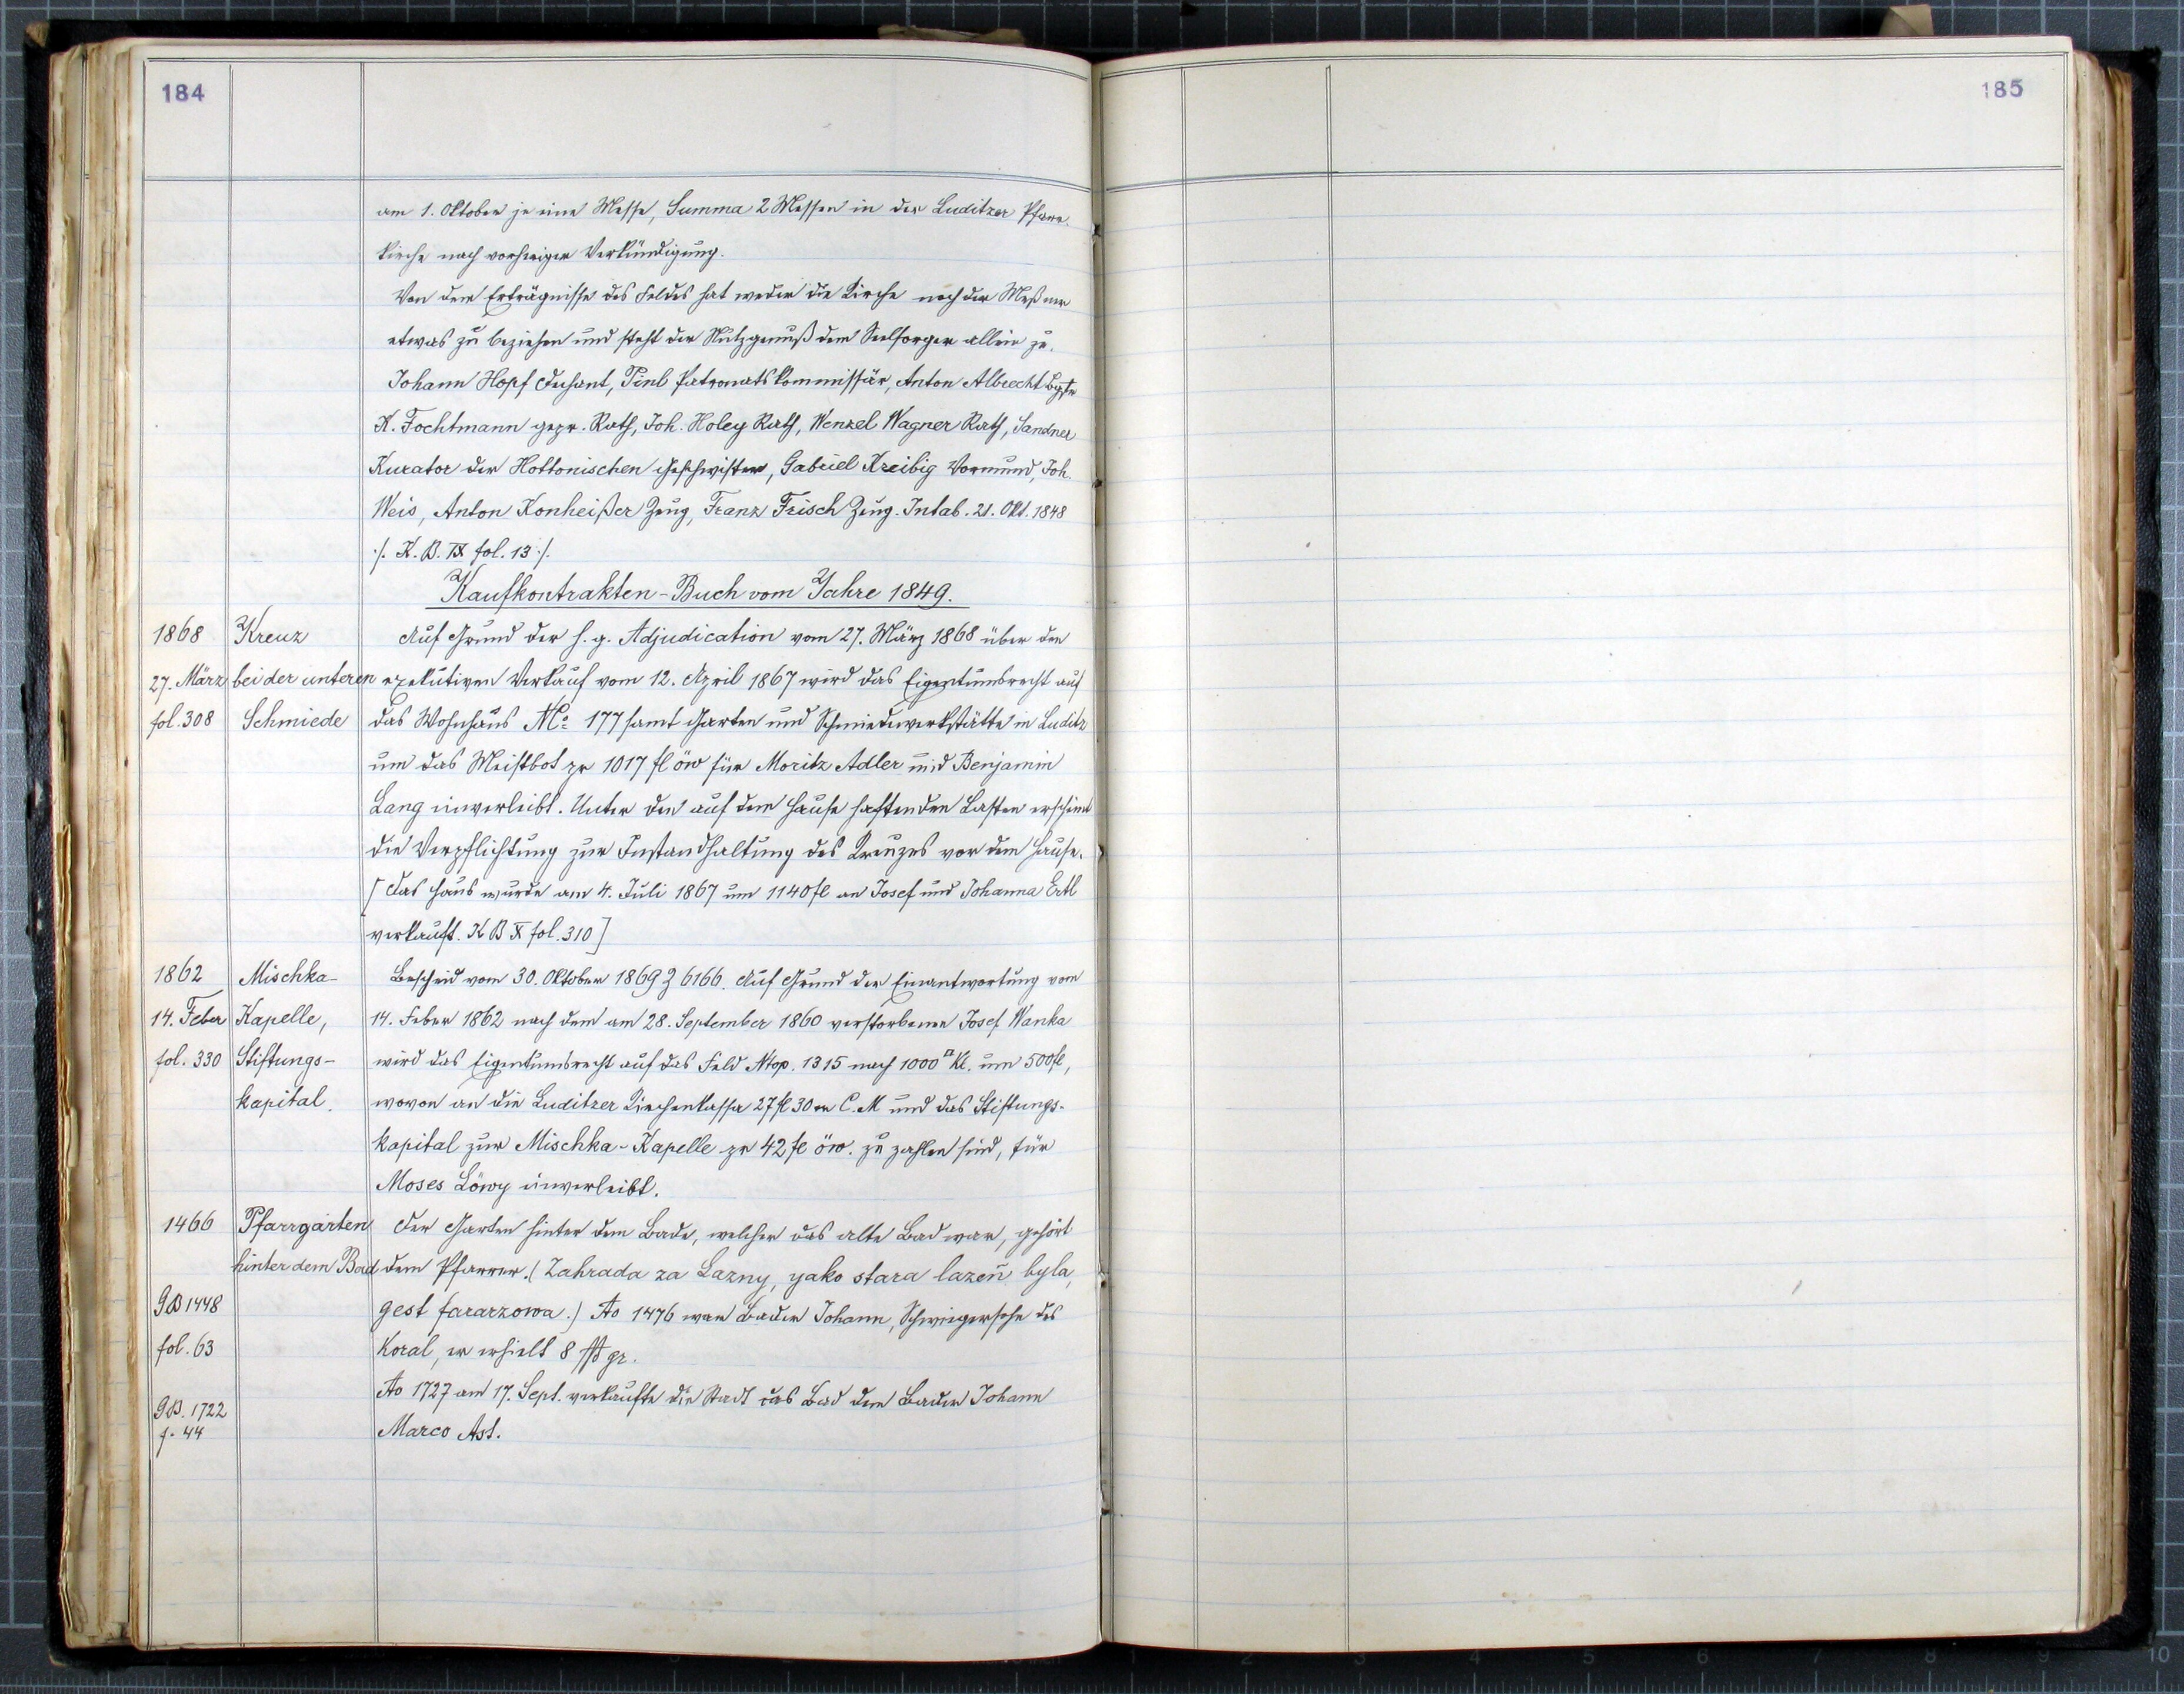 184
185
am 1. Oktober je eine Messe, Summa 2 Messen in der Luditzer Pfarr-
kirche nach vorheriger Verkündigung.
Von dem Erträgnisse des Feldes hat weder die Kirche noch der Meßner
etwas zu beziehen und steht der Nutzgenuß dem Seelsorger allein zu.
Johann Hopf Dechant, Pinl Patronatskommissär, Anton Albrecht Bgstr
K. Fochtmann gepr. Rath, Joh. Holey Rath, Wenzel Wagner Rath, Sandner
Kurator der Hottonischen Geschwister, Gabriel Kreibig Vormund, Joh.
Weis, Anton Konheißer Zeug, Franz Frisch Zeug. Intab. 21. Okt. 1848
./. K. B. IX fol. 13 ./.
Kaufkontrakten-Buch vom Jahre 1849.
1868 Kreuz Auf Grund der h. g. Adjudication vom 27. März 1868 über den
27. März bei der unteren exekutiven Verkauf vom 12. April 1867 wird das Eigentumsrecht auf
fol. 308 Schmiede das Wohnhaus No 177 samt Garten und Schmiedewerkstätte in Luditz
um das Meistbot pr 1017 fl öw für Moritz Adler und Benjamin
Lang einverleibt. Unter den auf dem Hause haftenden Lasten erscheint
die Verpflichtung zur Instandhaltung des Kreuzes vor dem Hause.
[Das Haus wurde am 4. Juli 1867 um 1140 fl an Josef und Johanna Ertl
verkauft. K B X fol. 310]
1862 Mischka- Bescheid vom 30. Oktober 1869 Z 6166. Auf Grund der Einantwortung vom
14. Feber Kapelle, 14. Feber 1862 nach dem am 28. September 1860 verstorbenen Josef Wanka
fol. 330 Stiftungs- wird das Eigentumsrecht auf das Feld Ntop. 1315 nach 1000 □ Kl. um 500 fl,
kapital. wovon an die Luditzer Kirchenkassa 27 fl 30 xr C. M und das Stiftungs-
kapital zur Mischka-Kapelle pr 42 fl öw. zu zahlen sind, für
Moses Löwy einverleibt.
1466 Pfarrgarten Der Garten hinter dem Bade, welcher das alte Bad war, gehört
hinter dem Bad dem Pfarrer. (Zahrada za Lazny, yako stara lazeň byla,
GB 1448 gest fararzowa.) Ao 1476 war Bader Johann, Schwiegersohn des
fol. 63 Koral, er erhielt 8 ßß gr.
GB. 1722 Ao 1727 am 17. Sept. verkaufte die Stadt das Bad dem Bader Johann
f. 44 Marco Ast.